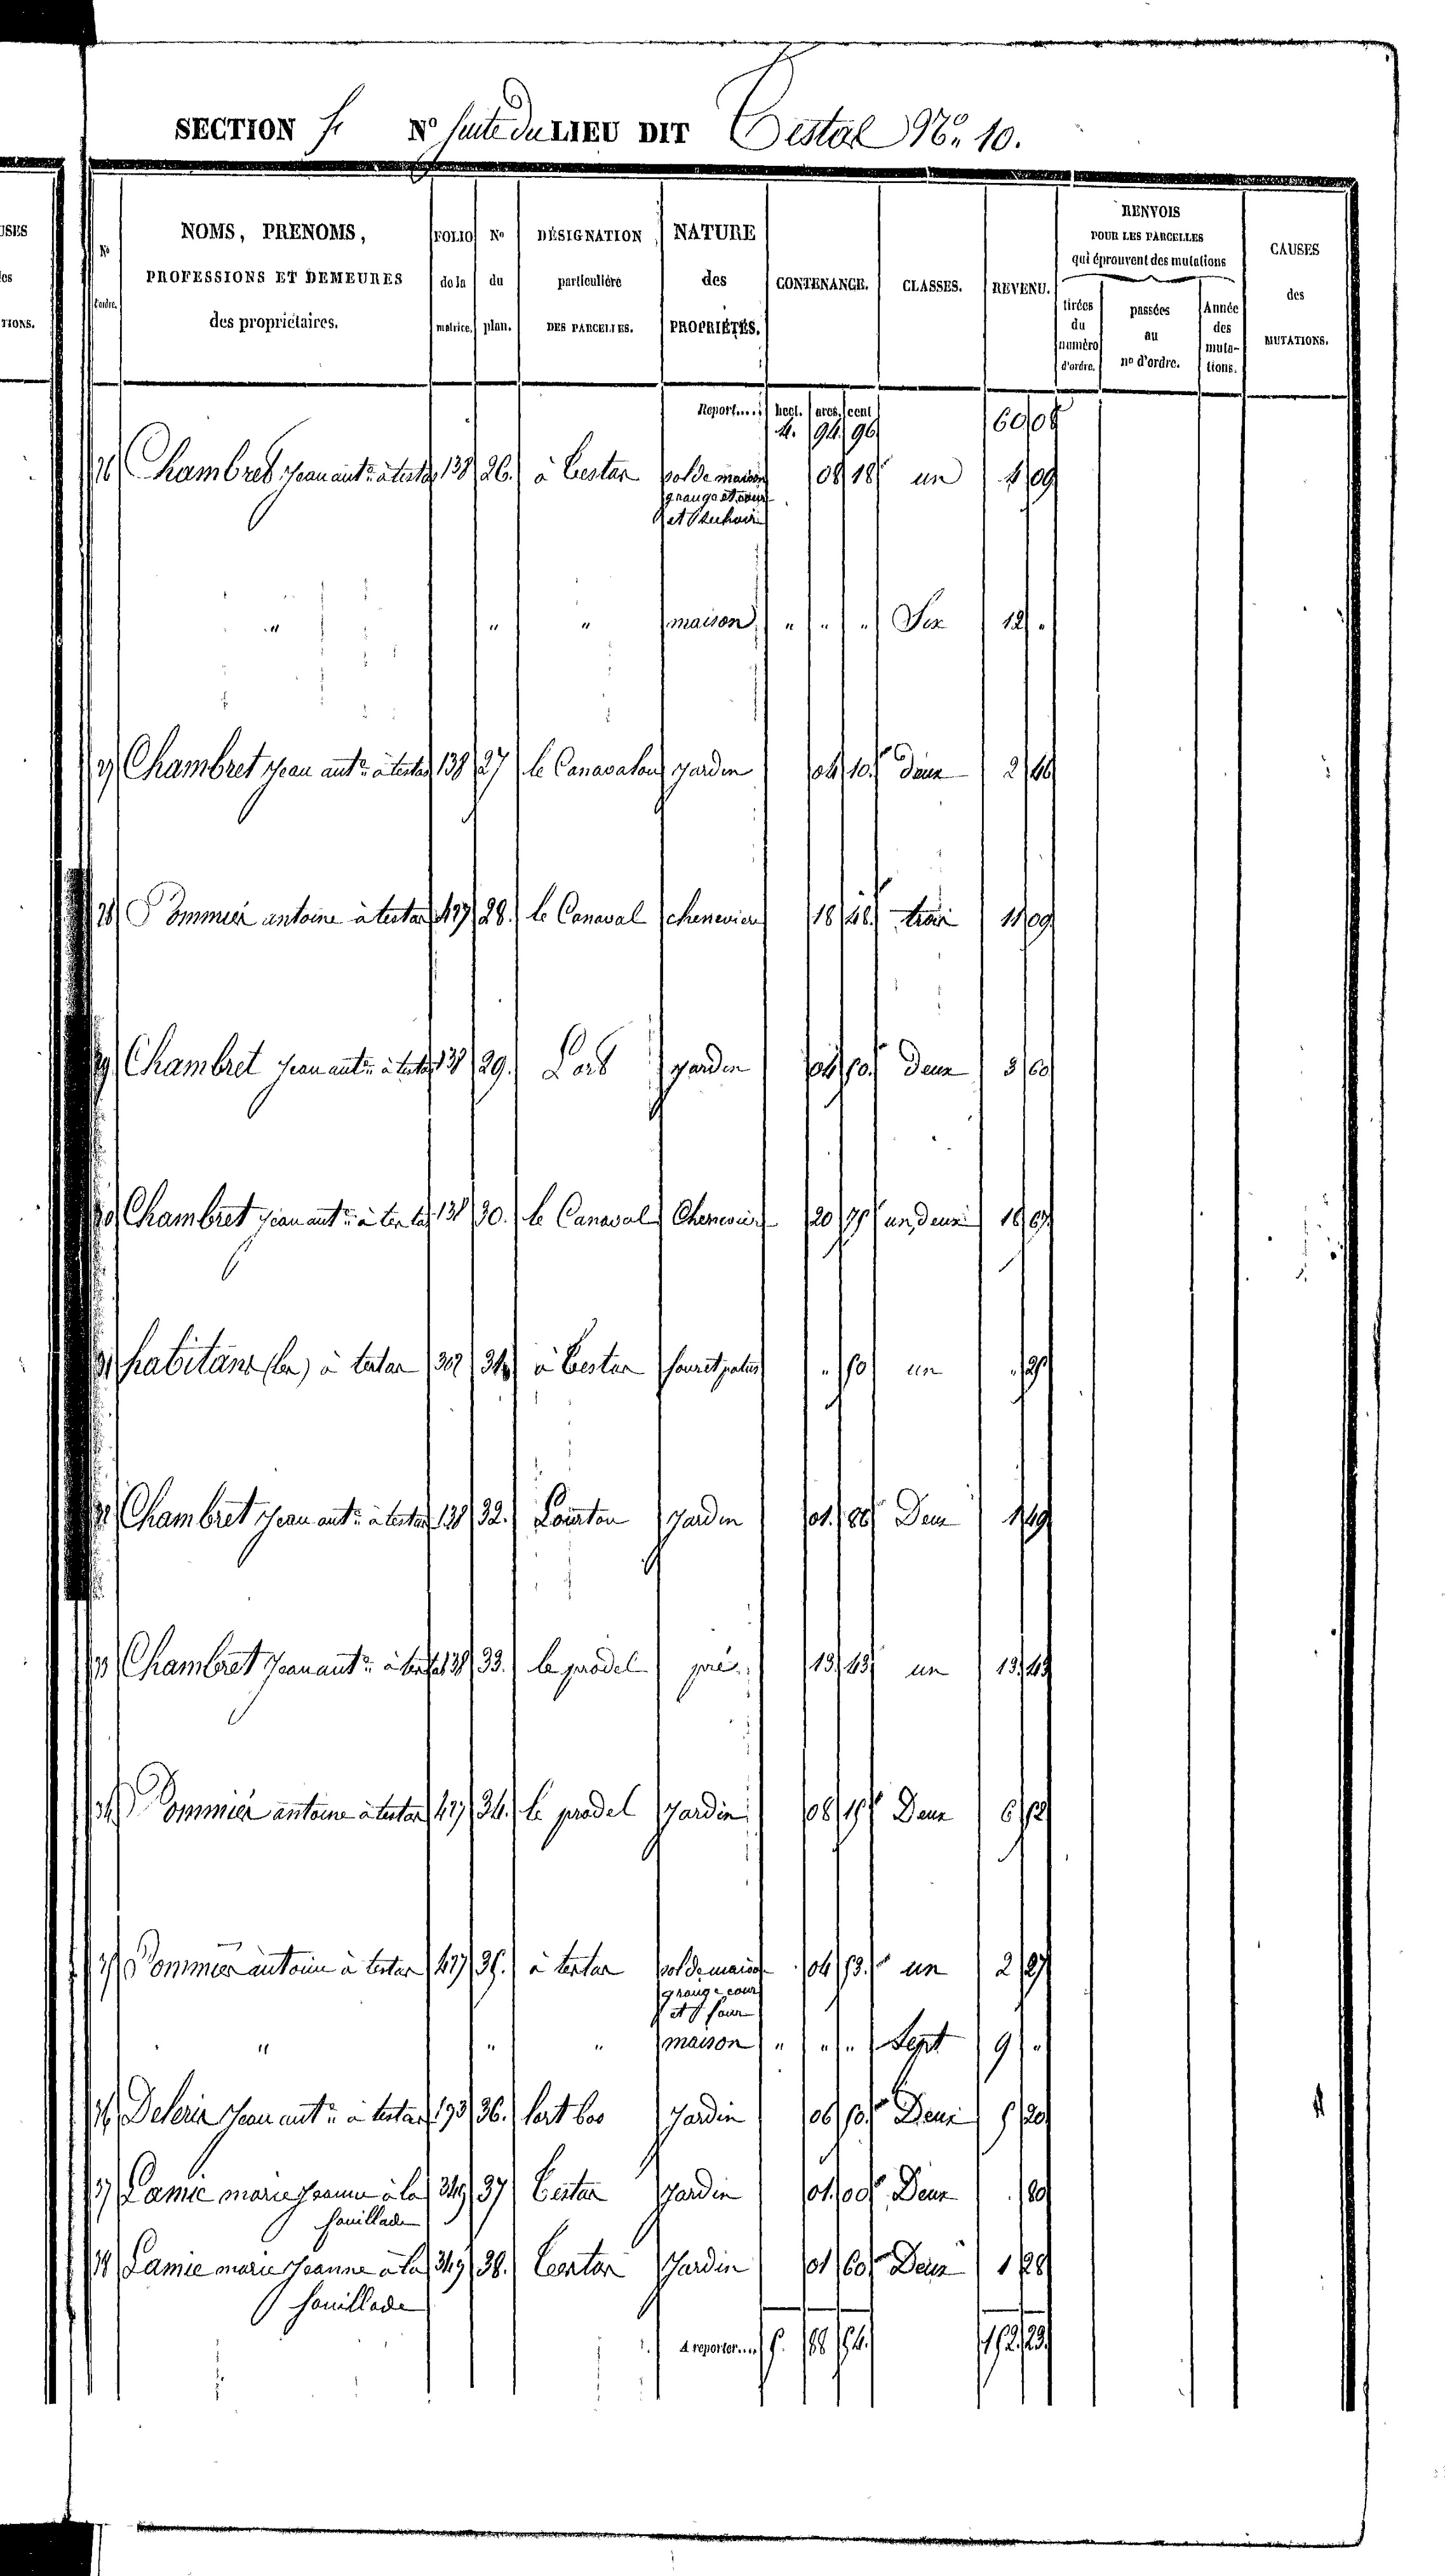 SECTION F N° suite du LIEU DIT Testar N° 10.
N° d'ordre. NOMS, PRENOMS, PROFESSIONS ET DEMEURES des propriétaires. FOLIO de la matrice. N° du plan. DÉSIGNATION particulière DES PARCELLES. NATURE des PROPRIÉTÉS. CONTENANCE. CLASSES. REVENU. RENVOIS POUR LES PARCELLES qui éprouvent des mutations tirées du numéro d'ordre. passées au n° d'ordre. Année des mutations. CAUSES des MUTATIONS.
Report.... hect. ares. cent
4. 94 96 60 05
26 Chambret Jean ant.ne à testar 138 26. à Testar sol de maison 08 18 un 4 09
grange et cour
et séchoir
" " " maison " " " Six 12 "
27 Chambret Jean ant.ne à testar 138 27 le Canavalou Jardin 04 10. deux 2 46
28 Pommier antoine à testar 427 28. le Canaval chenevière 18 48. trois 11 09
29 Chambret Jean ant.ne à testar 138 29. Lort Jardin Deux 3 60
30 Chambret Jean ant.ne à testar 138 30. le Canaval Chenevière 20 75 un, deux
31 habitans (les) à testar 302 31 à Testar four et patus " 50 un " 25
32 Chambret Jean ant.ne à testar 138 32. Lourtou Jardin 01. 86 Deux 1
33 Chambret Jean ant.ne à testar 138 33. le pradel pré. 13 43 un 13 43
34 Pommier antoine à testar 427 34. le pradel Jardin 08 15 Deux 6
35 Pommier antoine à testar 427 35. à testar sol de maison 04 53. un 2 27
grange cour
et four
" " " maison " " " Sept 9 "
36 Jean ant.ne à testar 193 36. lort bos Jardin 06 50 Deux 5 20
37 Lamie marie Jeanne à la 349 37 Testar Jardin 01. 00 Deux " 80
fouillade
38 Lamie marie Jeanne à la 349 38. Testar Jardin 01 60 Deux 1 28
fouillade
A reporter.... 5. 88 54. 152 23